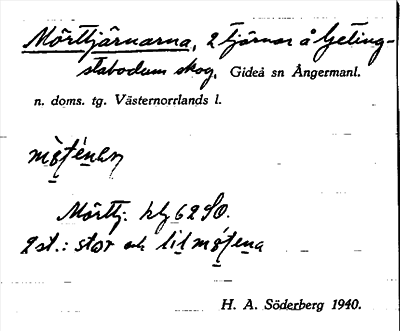 Mörttjärnarna, 2 tjärnar å Geting-
stabodum skog, Gideå sn Ångermanl.
n. doms. tg. Västernorrlands l.
Mörttj. blj 62 SO.
2 st.: stor och
H. A. Söderberg 1940.